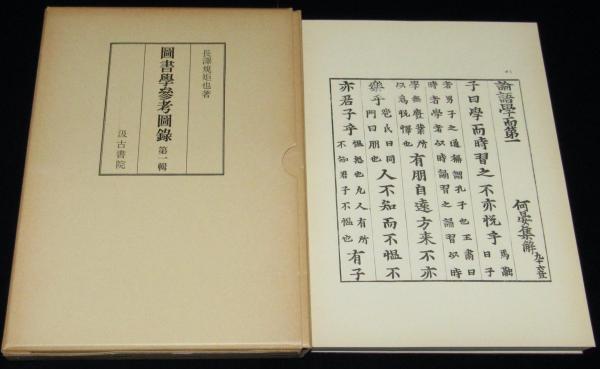 長澤規矩也著
圖書學參考圖錄 第一輯
汲古書院
論語學而第一
何晏集解
子曰學而時習之不亦悅乎 馬融曰子
者男子之通稱謂孔子也王肅曰
時者學者以時誦習之誦習以時
學無廢業所
以為悅懌也
有朋自遠方來不亦
樂乎 苞氏曰同
門曰朋也
人不知而不慍不
亦君子乎 慍怒也凡人有所
不知君子不慍也
有子